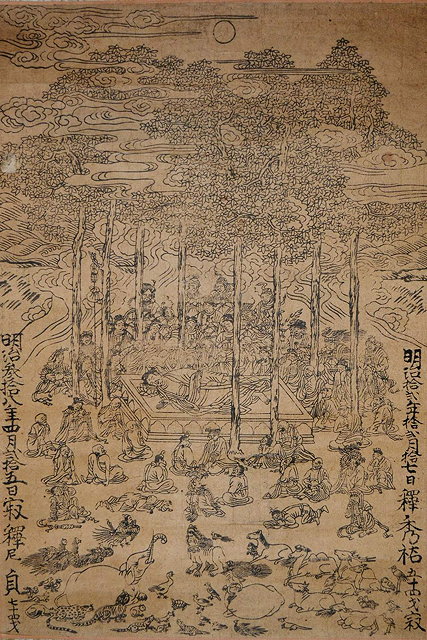 明治拾弐年拾弐月拾七日釋秀祐十四才寂
明治拾年四月弐拾五日寂釋尼貞